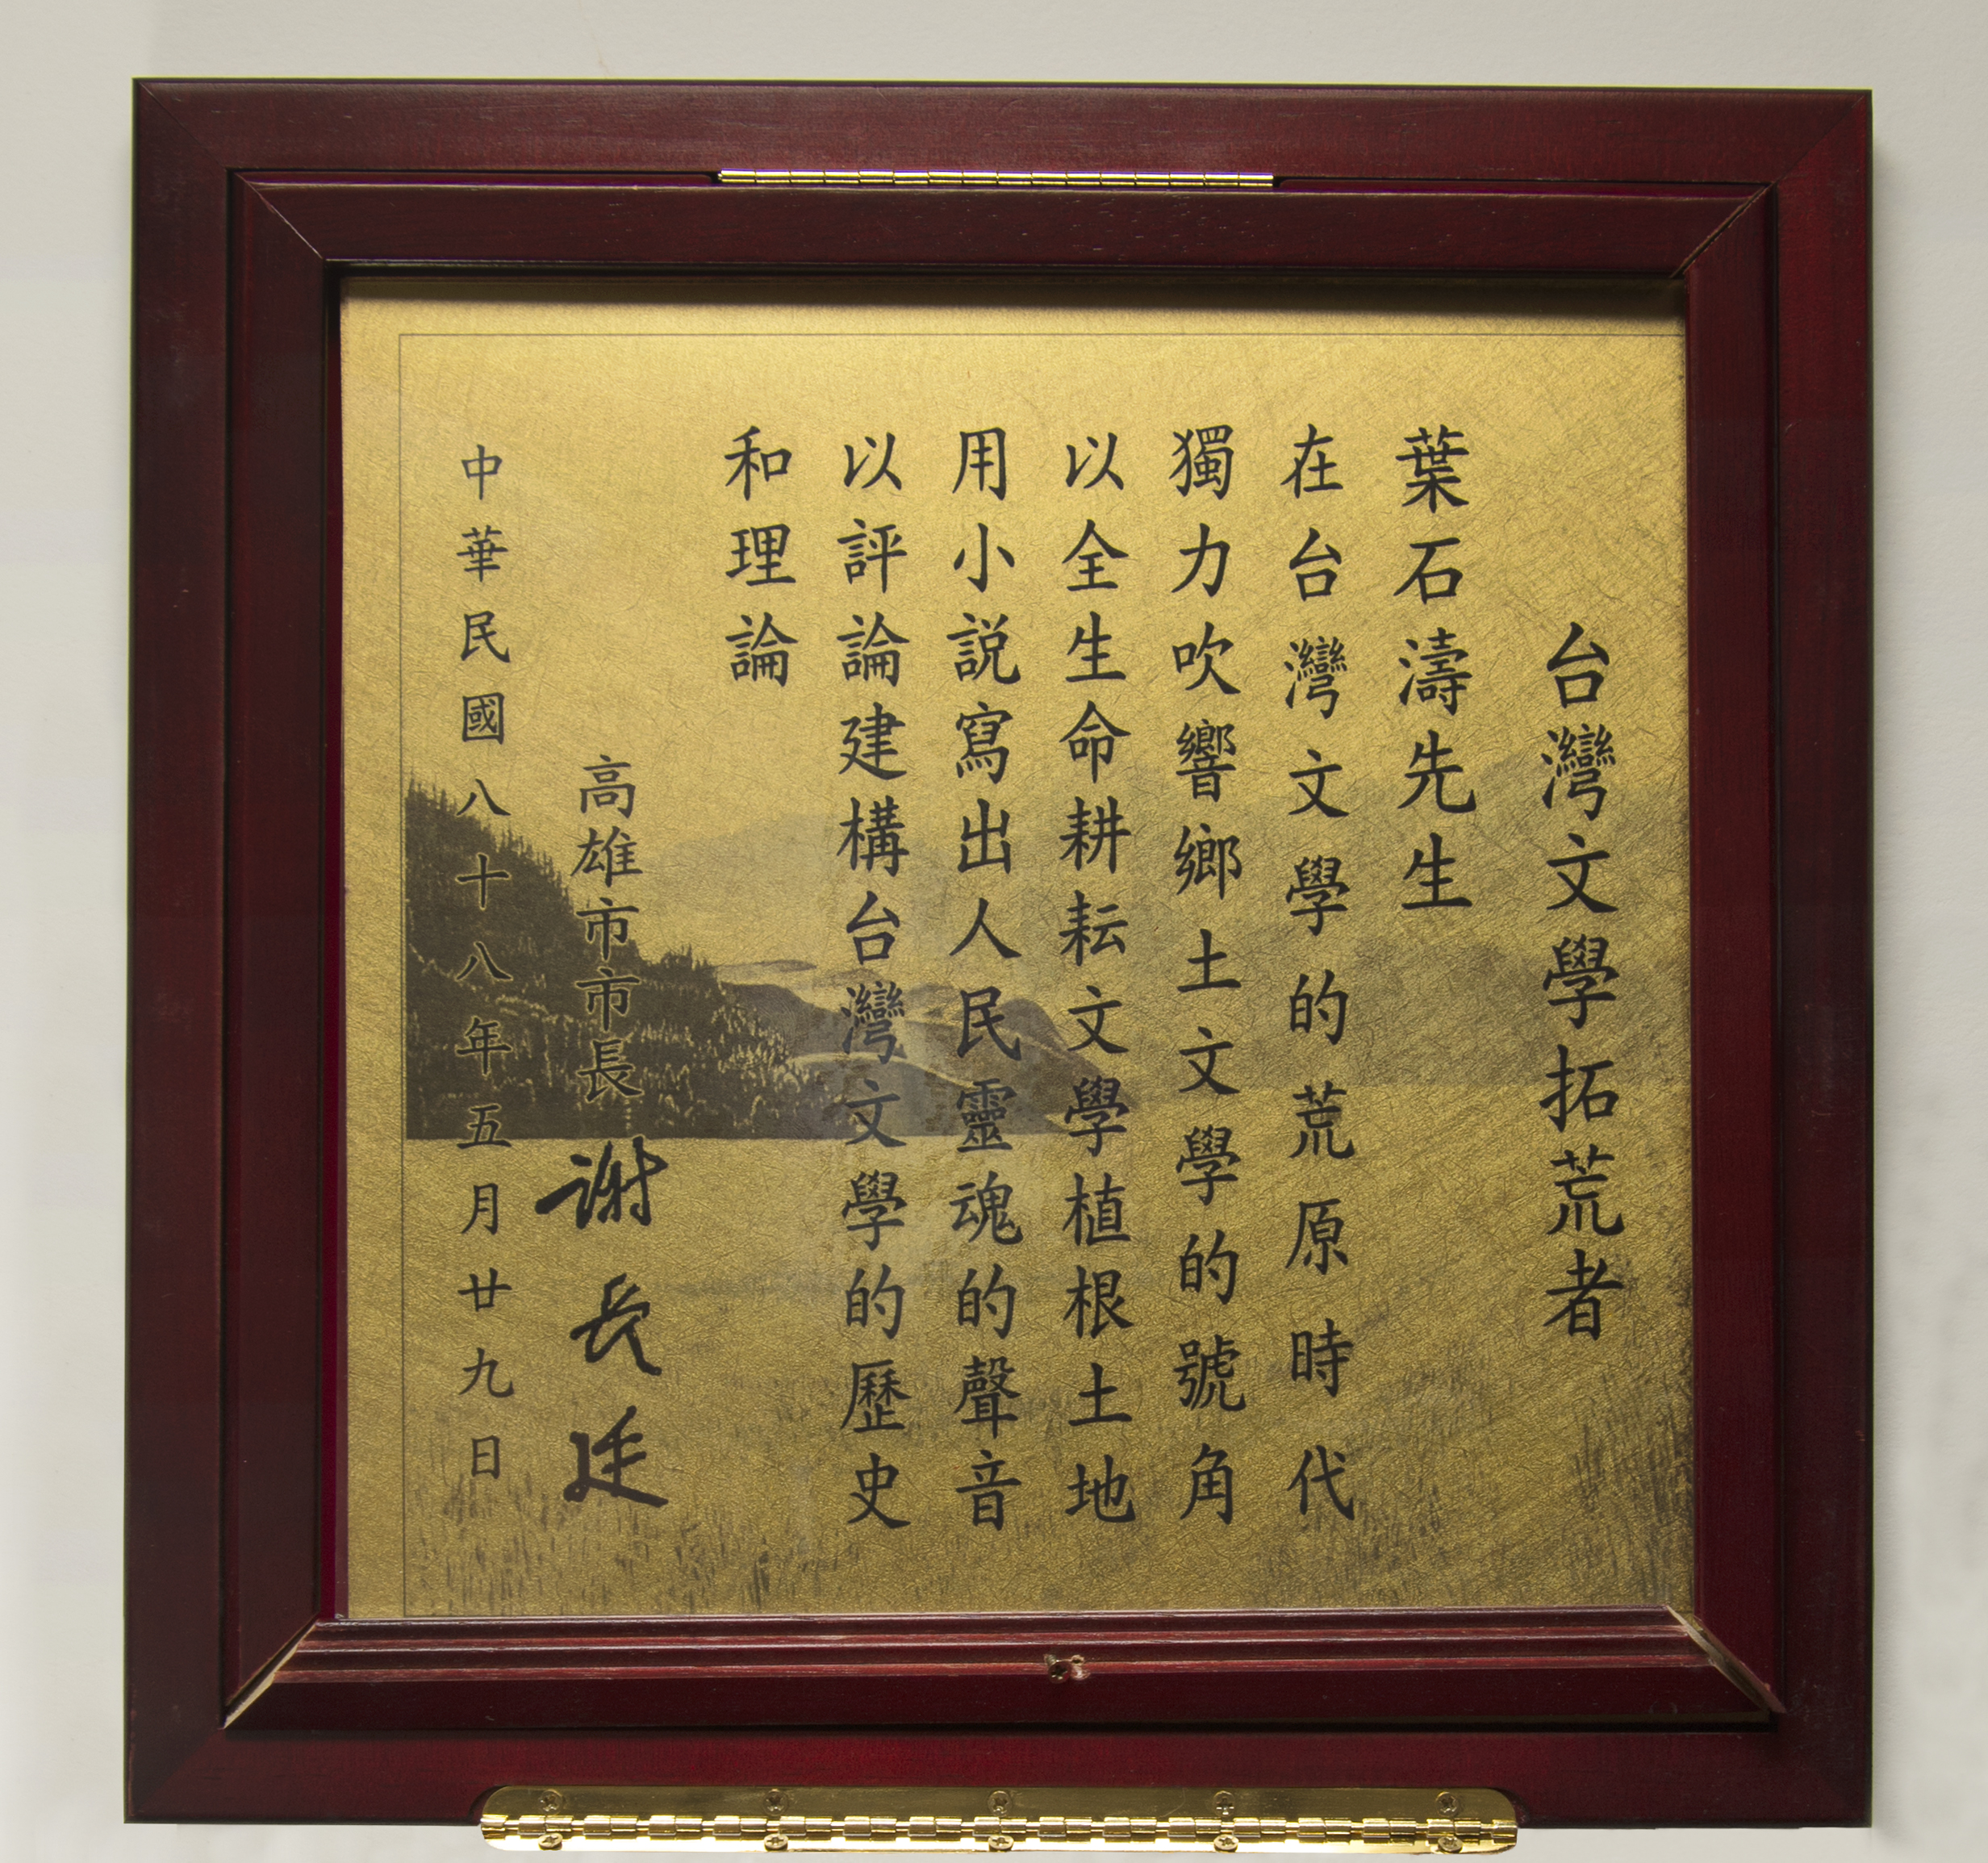 台灣文學拓荒者
葉石濤先生
在台灣文學的荒原時代
獨力吹響鄉土文學的號角
以全生命耕耘文學植根土地
用小説寫出人民靈魂的聲音
以評論建構台灣文學的歷史
和理論
高雄市市長 謝長廷
中華民國八十八年五月廿九日